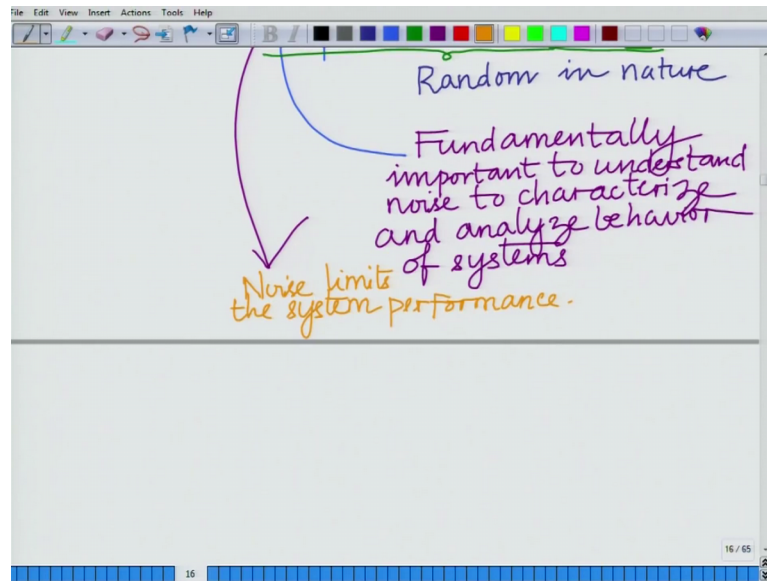 File Edit View Insert Actions Tools Help
B I
Random in nature
Fundamentally
important to understand
noise to characterize
and analyze behavior
of systems
Noise limits
the system performance.
16 / 65
16